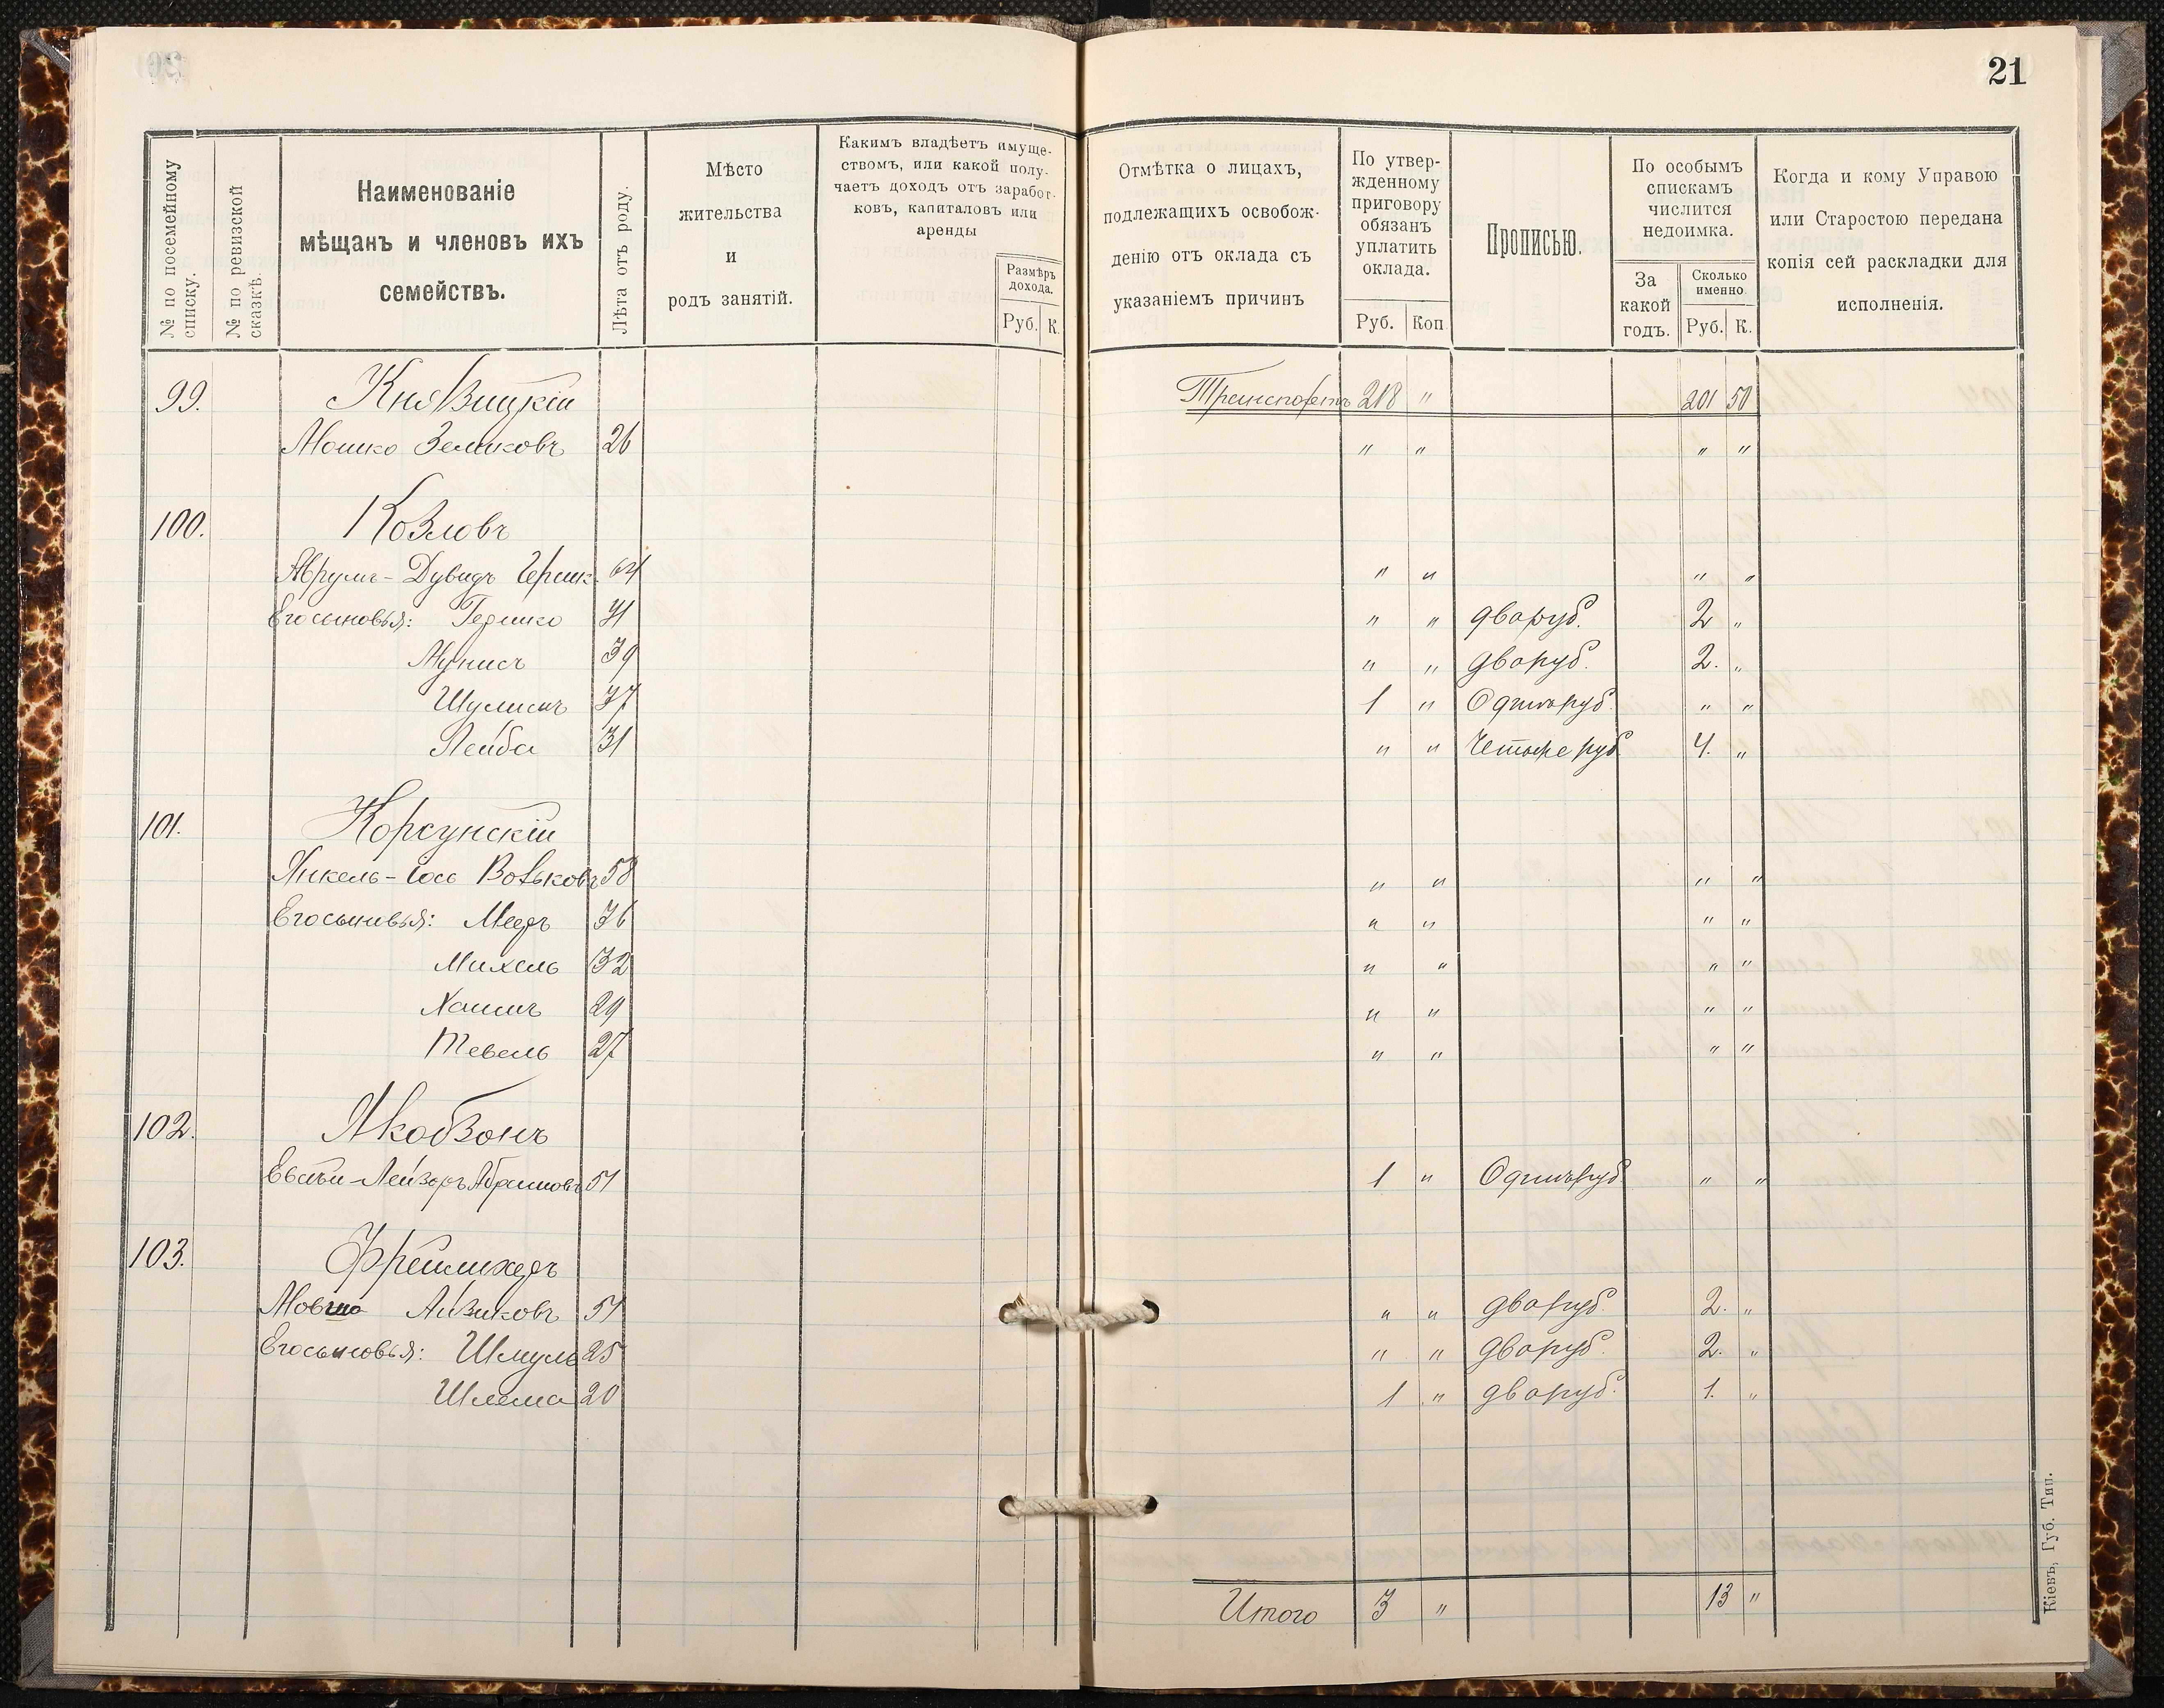 21
№ по посемейному списку.
№ по ревизской сказкѣ.
Наименованіе
мѣщанъ и членовъ ихъ
семействъ.
Лѣта отъ роду.
Мѣсто
жительства
и
родъ занятій.
Какимъ владѣетъ имуще-
ствомъ, или какой полу-
чаетъ доходъ отъ заработ-
ковъ, капиталовъ или
аренды
Размѣръ
дохода.
Руб. К.
Отмѣтка о лицахъ,
подлежащихъ освобож-
денію отъ оклада съ
указаніемъ причинъ
По утвер-
жденному
приговору
обязанъ
уплатить
оклада.
Руб. Коп
Прописью.
По особымъ
спискамъ
числится
недоимка.
За
какой
годъ.
Сколько
именно
Руб. К.
Когда и кому Управою
или Старостою передана
копія сей раскладки для
исполненія.
99. Князвицкій Транспортъ 218 " 201 50
Мошко Зеликовъ 26 " " " "
100. Козловъ
Аврумъ-Дувидъ Гершк. 64 " " " "
Его сыновья: Гершко 41 " " два руб. 2 "
Мунисъ 39 " " два руб. 2. "
Шулимъ 37 1 " Одинъ руб. " "
Лейба 31 " " Четыре руб. 4. "
101. Корсунскій
Янкель-Іось Вовьковъ 58 " " " "
Его сынивья: Мееръ 36 " " " "
Михель 32 " " " "
Хаимъ 29 " " " "
Тевель 27 " " " "
102. Якобзонъ
Евсѣй-Лейзоръ Абрамовъ 51 1 " Одинъ руб. " "
103. Фреймихеръ
Мовша Айзиковъ 51 " " два руб. 2. "
Его сыновья: Шмуль 25 " " два руб. 2. "
Шлема 20 1 " два руб. 1. "
Итого 3 " 13 "
Кіевъ, Губ. Тип.